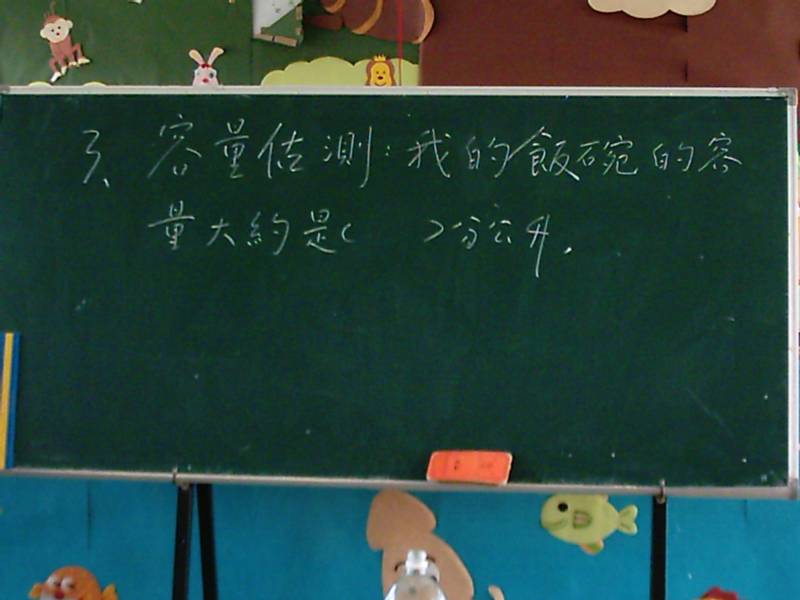 3、容量估測:我的飯碗的容
量大約是( )分公升.